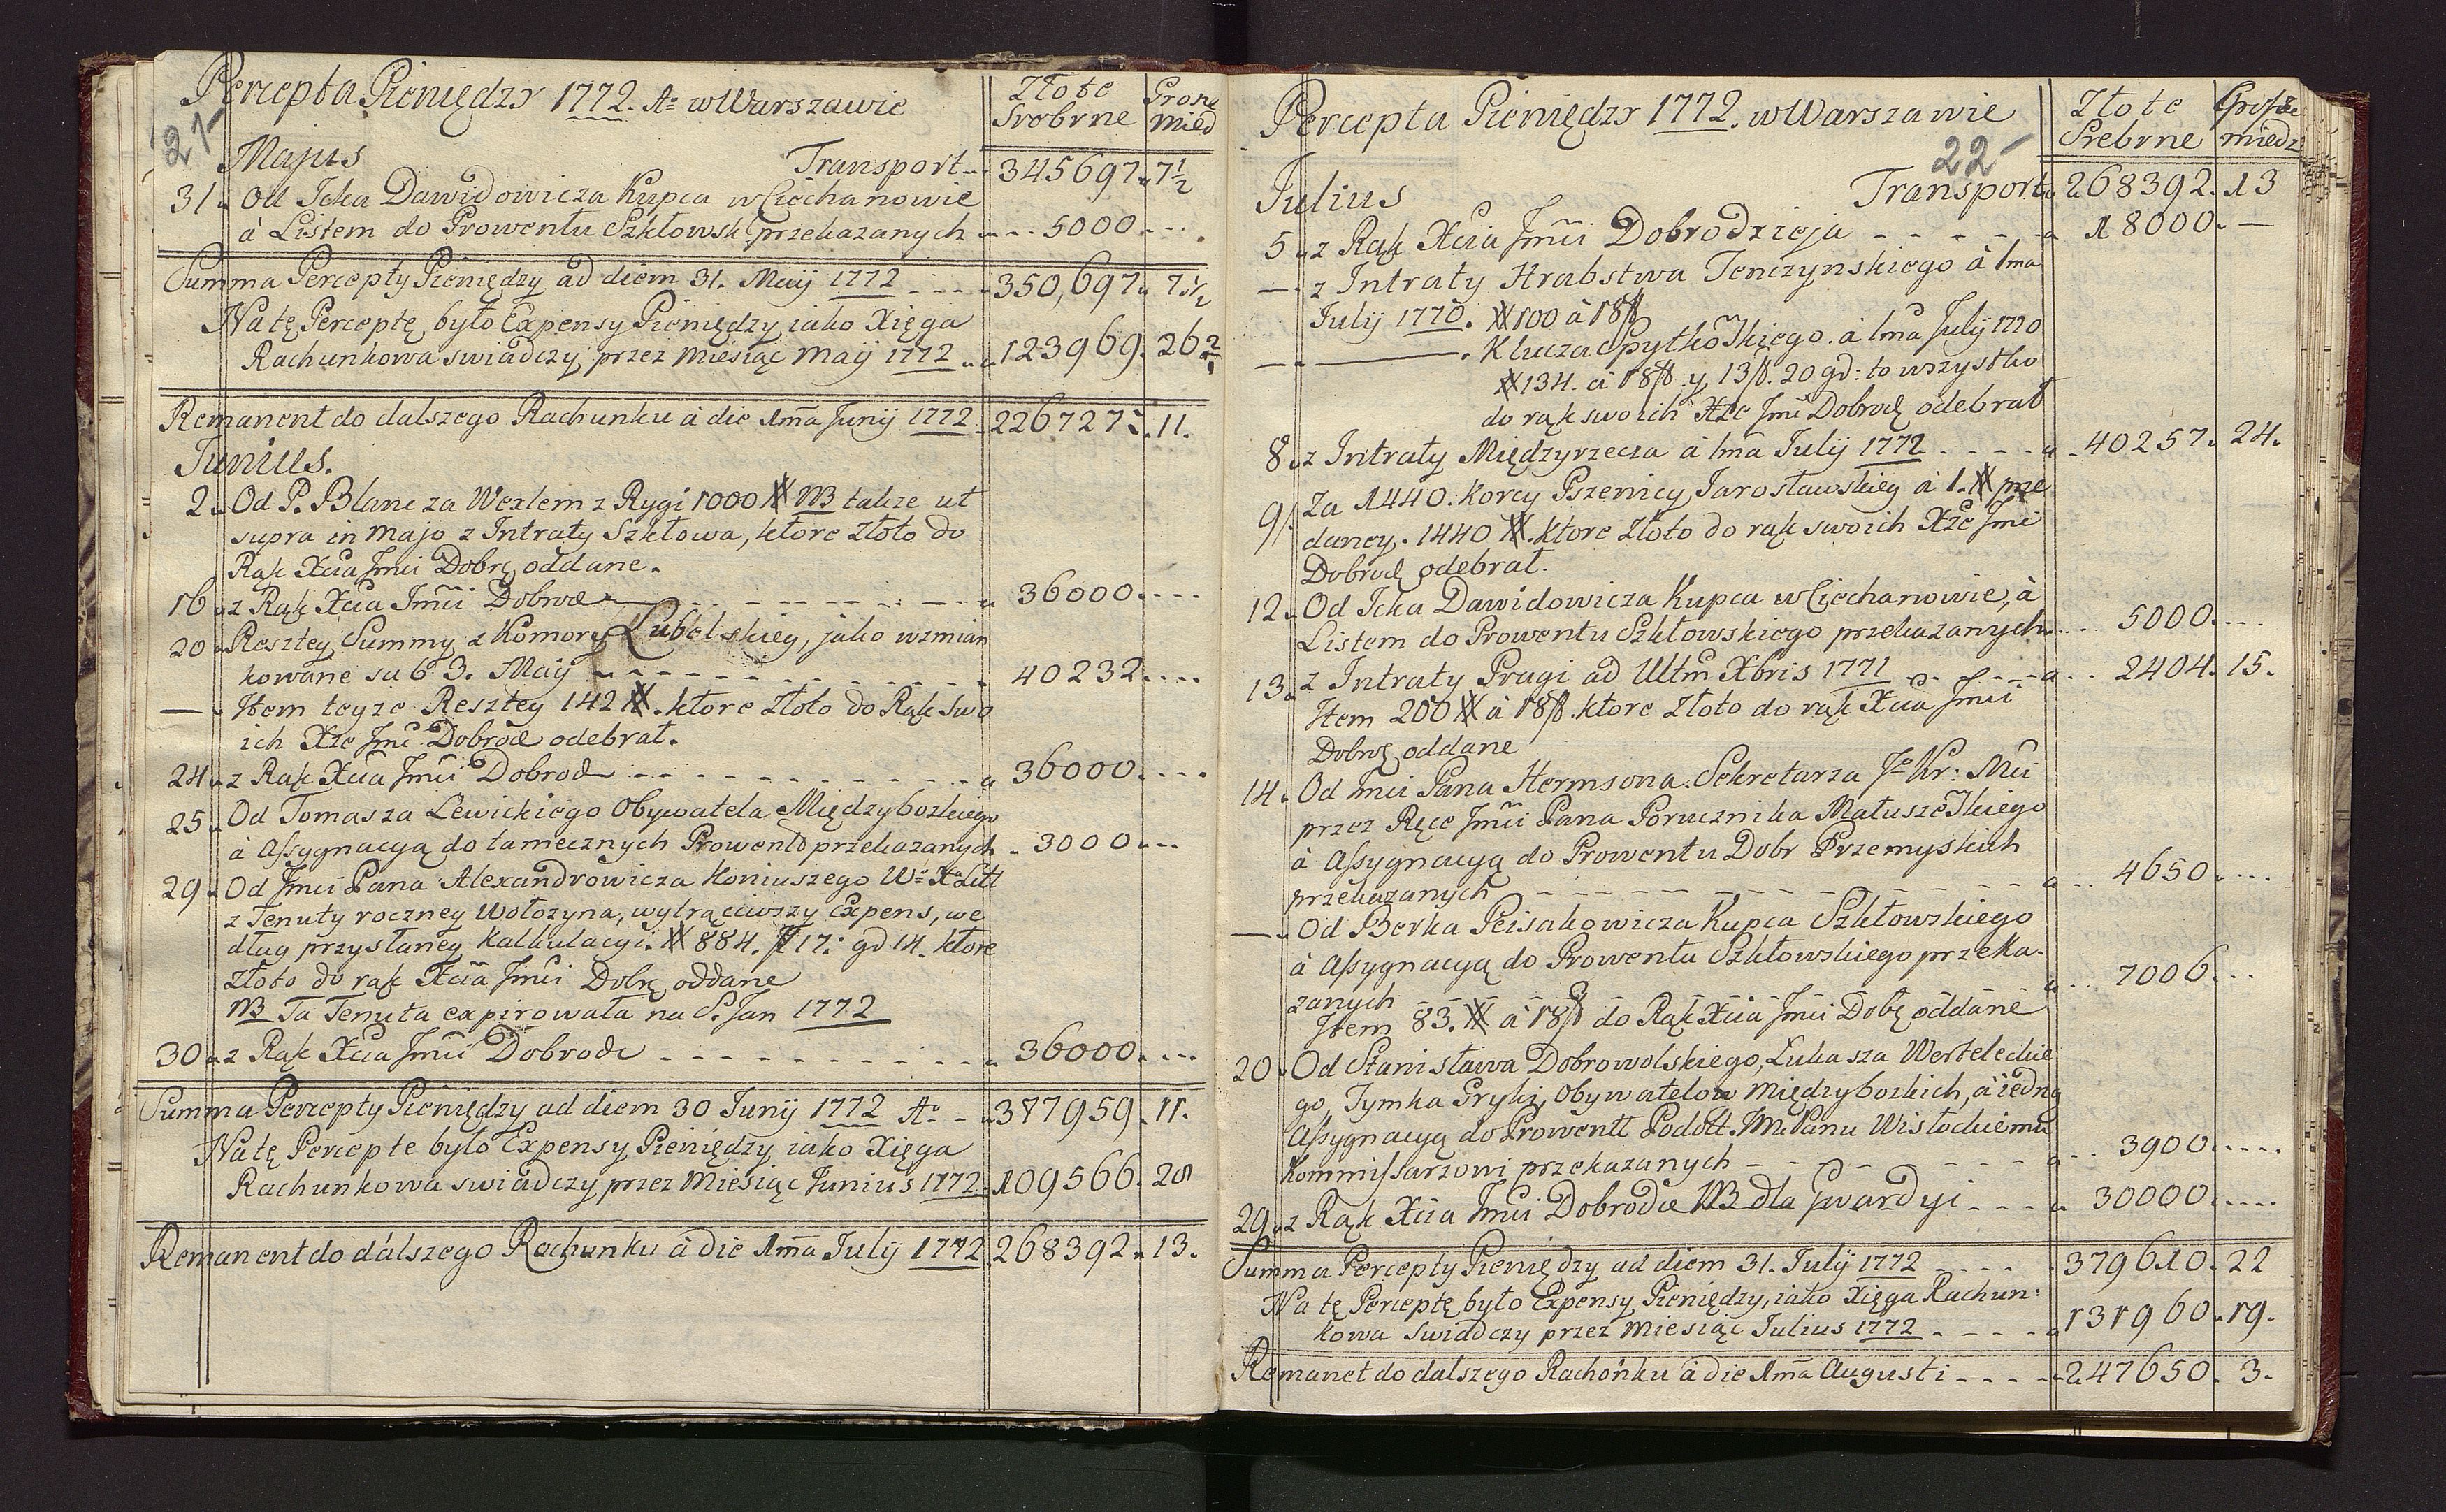 Percepta Pieniędzy 1772. Aº w Warszawie
Złote Srobrne
Grosze Mied
21-
Majus Transport 345697. 7½
31. Od Icka Dawidowicza Kupca w Ciechanowie
à Listem do Prowentu Szkłowsk przekazanych 5000.
Summa Percepty Pieniędzy ad diem 31. Maij 1772 350,697. 7½
Na tę Perceptę było Expensy Pieniędzy iako Xięga
Rachunkowa swiadczy, przez Miesiąc Maij 1772 123969. 26
Remanent do dalszego Rachunku à die 1ma Junij 1772 226727. 11.
Junius.
2. Od P. Blanc za Wexlem z Rygi 1000 # NB także ut
supra in Majo z Intraty Szkłowa, ktore Złoto do
Rąk Xcia Jmci Dobrę oddane.
16. z Rąk Xcia Jmci Dobrod 36000.
20. Resztey Summy z Komory Lubelskiey, jako wzmian
kowane sub 3. Maij 40232.
— Item teyze Resztey 142 #. ktore Złoto do Rąk Swo
ich Xże Jmć Dobrod odebrał.
24. z Rąk Xcia Jmci Dobrod 36000.
25. Od Tomasza Lewickiego Obywatela Międzybozkiego
à Assygnacyą do tamecznych Prowentó przekazanych 3000.
29. Od Jmci Pana Alexandrowicza Koniuszego Wº Xº Litt
z Tenuty roczney Wołozyna, wytrąciwszy Expens, we
dług przysłaney Kalkulacyi. # 884. f 17: gd 14. ktore
Złoto do rąk Xcia Jmci Dobrę oddane
NB Ta Tenuta expirowała na S. Jan 1772
30. z Rąk Xcia Jmci Dobrode 36000.
Summa Percepty Pieniędzy ad diem 30 Junij 1772 Aº 377959. 11.
Na tę Percepte było Expensy Pieniędzy iako Xięga
Rachunkowa swiadczy przez Miesiąc Junius 1772. 109566. 28
Remanent do dalszego Rachunku à die 1ma Julij 1772 268392. 13.
Percepta Pieniędzy 1772. w Warszawie
Złote Srebrne
Grosze miedz
22-
Julius Transport 268392. 13
5. z Rąk Xcia Jmci Dobrodzieja 18000. —
— z Intraty Hrabstwa Tenczynskiego à 1ma
Julij 1770. # 100 à 18f
— . Klucza Spytkoskiego. à 1ma Julij 1770
# 134. à 18f. y 13f. 20 gd: to wszystko
do rąk swoich Xże Jmć Dobrodz odebrał
8. z Intraty Międzyrzecza à 1ma Julij 1772 40257. 24.
9. Za 1440. Korcy Pszenicy Jarosławskiey à 1. # prze
daney. 1440 #. ktore Złoto do rąk swoich Xże Jmć
Dobrod odebrał.
12. Od Icka Dawidowicza Kupca w Ciechanowie, à
Listem do Prowentu Szkłowskiego przekazanych 5000.
13. z Intraty Pragi ad Ultm Xbris 1771 2404. 15.
Item 200 # à 18f. ktore Złoto do rąk Xcia Jmci
Dobrę oddane
14. Od Jmci Pana Hermsona Sekretarza J Kr: Mci
przez Ręce Jmci Pana Porucznika Matuszeskiego
à Assygnacyą do Prowentu Dobr Przemyskich
przekazanych 4650.
— Od Berka Peisakowicza Kupca Szkłowskiego
à Assygnacyą do Prowentu Szkłowskiego przeka-
zanych 7006.
Item 83. # à 18f do Rąk Xcia Jmci Dobę oddane
20. Od Stanisława Dobrowolskiego, Lukasza Werteleckie
go, Tymka Gryki, Obywatelow Międzybozkich, à iedną
Assygnacyą do Prowentt Podolt. Jm Panu Wisłockiemu
Kommissarzowi przekazanych 3900.
29. z Rąk Xcia Jmci Dobrodie NB dla Gwardyi 30000.
Summa Percepty Pieniędzy ad diem 31. Julij 1772 379610. 22
Na tę Perceptę było Expensy Pieniędzy, iako Xięga Rachun:
kowa Swiadczy przez Miesiąc Julius 1772 131960. 19.
Remanet do dalszego Rachonku à die 1ma Augusti 247650. 3.